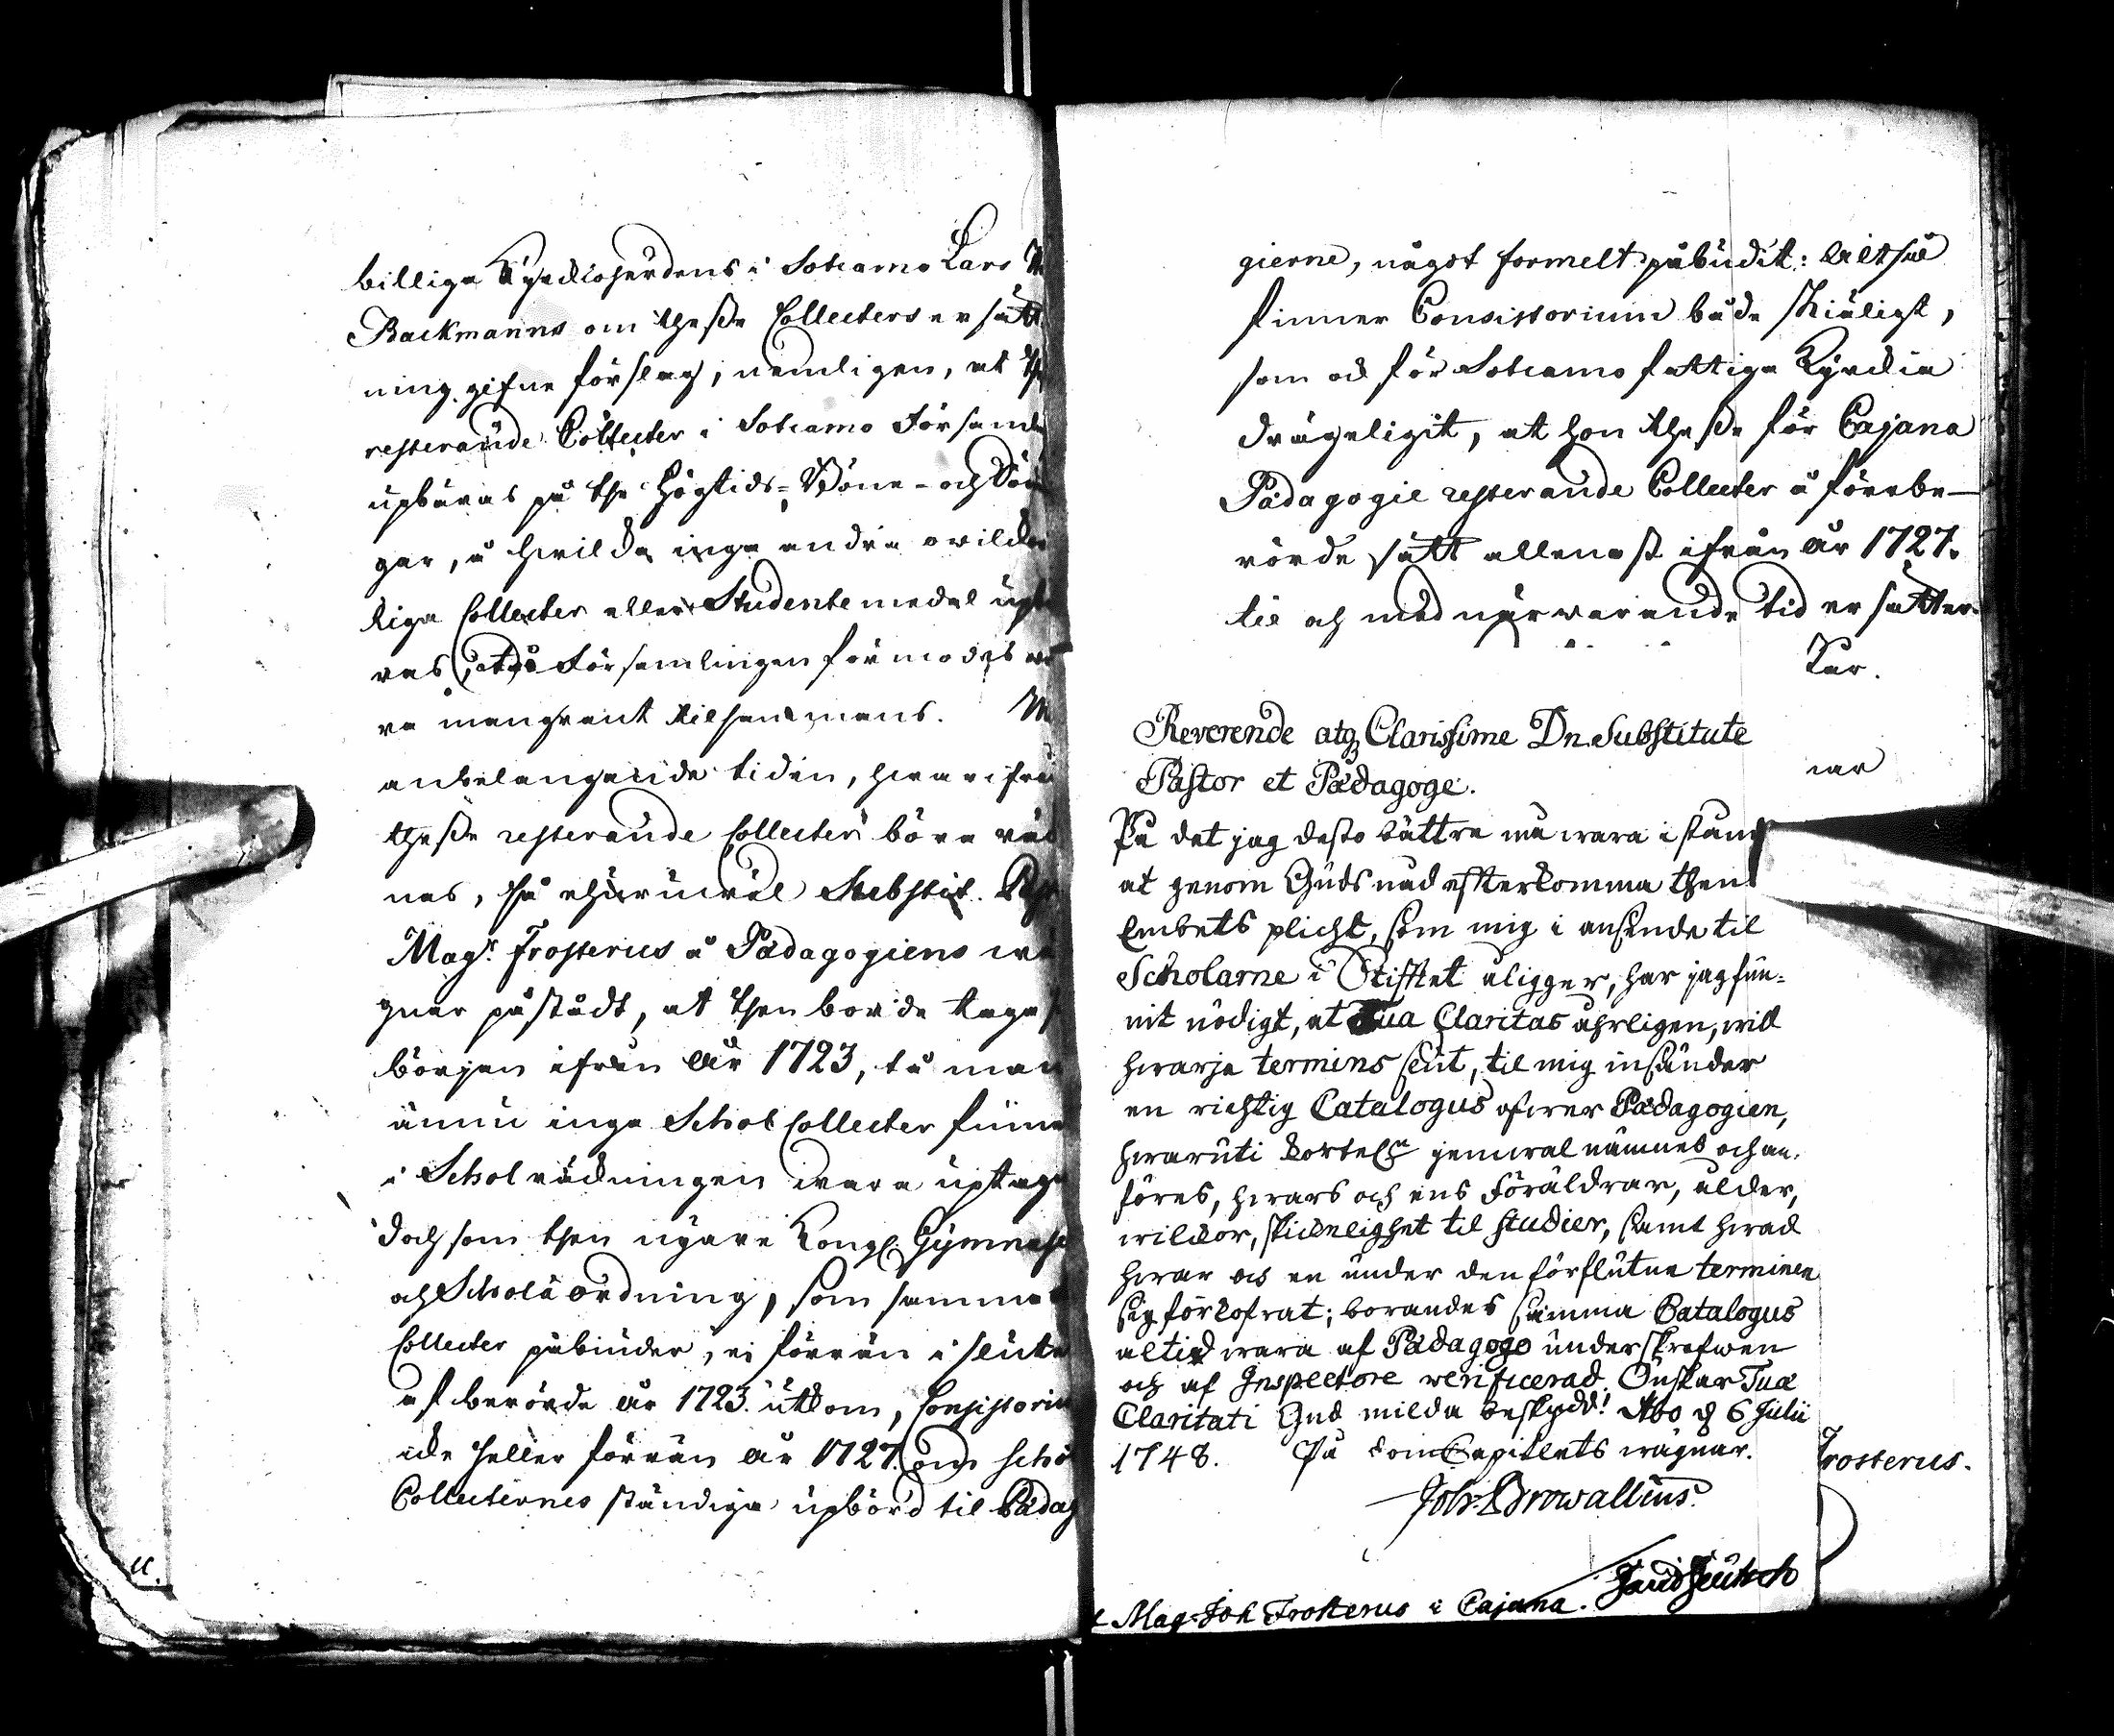 billiga Kyrckioherdens i Sotcamo Lars
Backmanns om thesse Collecters ersätt
ning gifne förslag, nemligen, at the
resterande Collecter i Sotcamo Församl
upbäras på the Högtids- Böne- och Sön
gar, å hwilcka inga andra owilckor
liga Collecter eller Studentemedel up
ras, at så Församlingen förmodes wa
ra mangrant tilsammans. M
anbelangande tiden, hwarifrån
thesse resterande Collecter böra räk
nas, så ehuruwäl Substit.
Mag:r Frosterus å Pædagogiens wä
gnar påstådt, at then borde tagas
början ifrån År 1723, tå man
ännu inga Schol Collecter finna
i Scholräckningen wara uptagne
doch som then nyare Kongl. Gymnasi
och Schola ordning, som samma
Collecter påbiuder, ej förrän i slute
af berörde År 1723 utkom, Consistorium
icke heller förrän År 1727 om Scho
Collecternes ständiga upbörd til Pædag
u.
gierne, något formelt påbudit: Altså
finner Consistorium både skiäligt,
som ock för Sotcamo fattiga Kyrckia
drägeligit, at hon thesse för Cajana
Pædagogie resterande Collecter å förebe-
rörde sätt allenast ifrån År 1727.
til och med närwarande tid ersätter.
nar
Reverende atq Clarissime Dn. Substitute
Pastor et Pædagoge.
På det jag desto bättre må wara i stånd
at genom Guds nåd efterkomma then
Embets plicht, som mig i anseende til
Scholarne i Stiftet åligger, har jag fun-
nit nödigt, at Tua Claritas åhrligen, wid
hwarje termins slut, til mig insänder
en richtig Catalogus öfwer Pædagogien,
hwaruti korteln jemwäl nämnes och an-
föres, hwars och ens Föräldrar, ålder,
wilckor, skickelighet til studier, samt hwad
hwar och en under den förflutne terminen
sig förkofrat; borandes samma Catalogus
altid wara af Pædagogo underskrefwen
och af Inspectore verificerad. Önskar Tuæ
Claritati Gud milda beskydd! Åbo d 6 Julii
1748. På DomCapitlets wägnar.
Joh. Browallius.
Mag. Joh Frosterus i Cajana.
Frosterus.